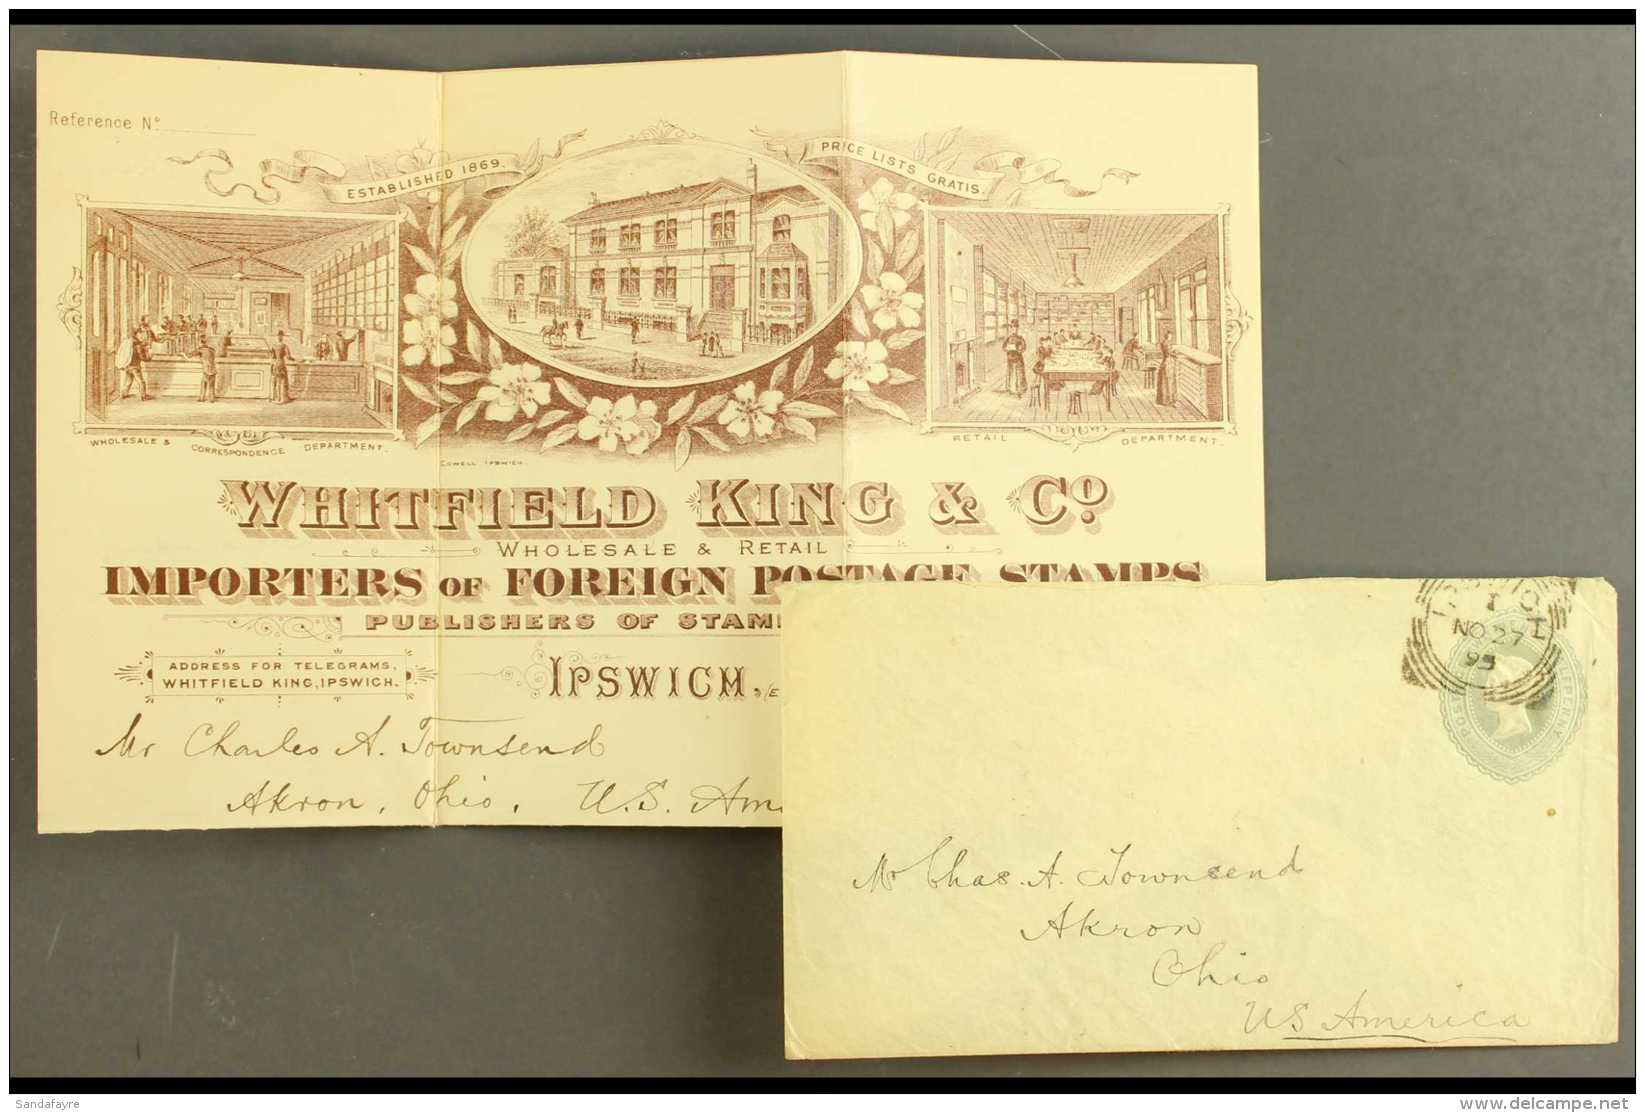 Reference Nº
ESTABLISHED 1869.
PRICE LISTS GRATIS.
WHOLESALE & CORRESPONDENCE DEPARTMENT.
RETAIL DEPARTMENT.
COWELL IPSWICH.
WHITFIELD KING & Cº
WHOLESALE & RETAIL
IMPORTERS OF FOREIGN POSTAGE STAMPS
PUBLISHERS OF STAM
ADDRESS FOR TELEGRAMS,
WHITFIELD KING, IPSWICH.
IPSWICH,
Mr Charles A. Townsend
Akron, Ohio, U.S. Am
NO 27
95
Mr Chas. A. Townsend
Akron
Ohio
US America
Sandafayre
delcampe.net